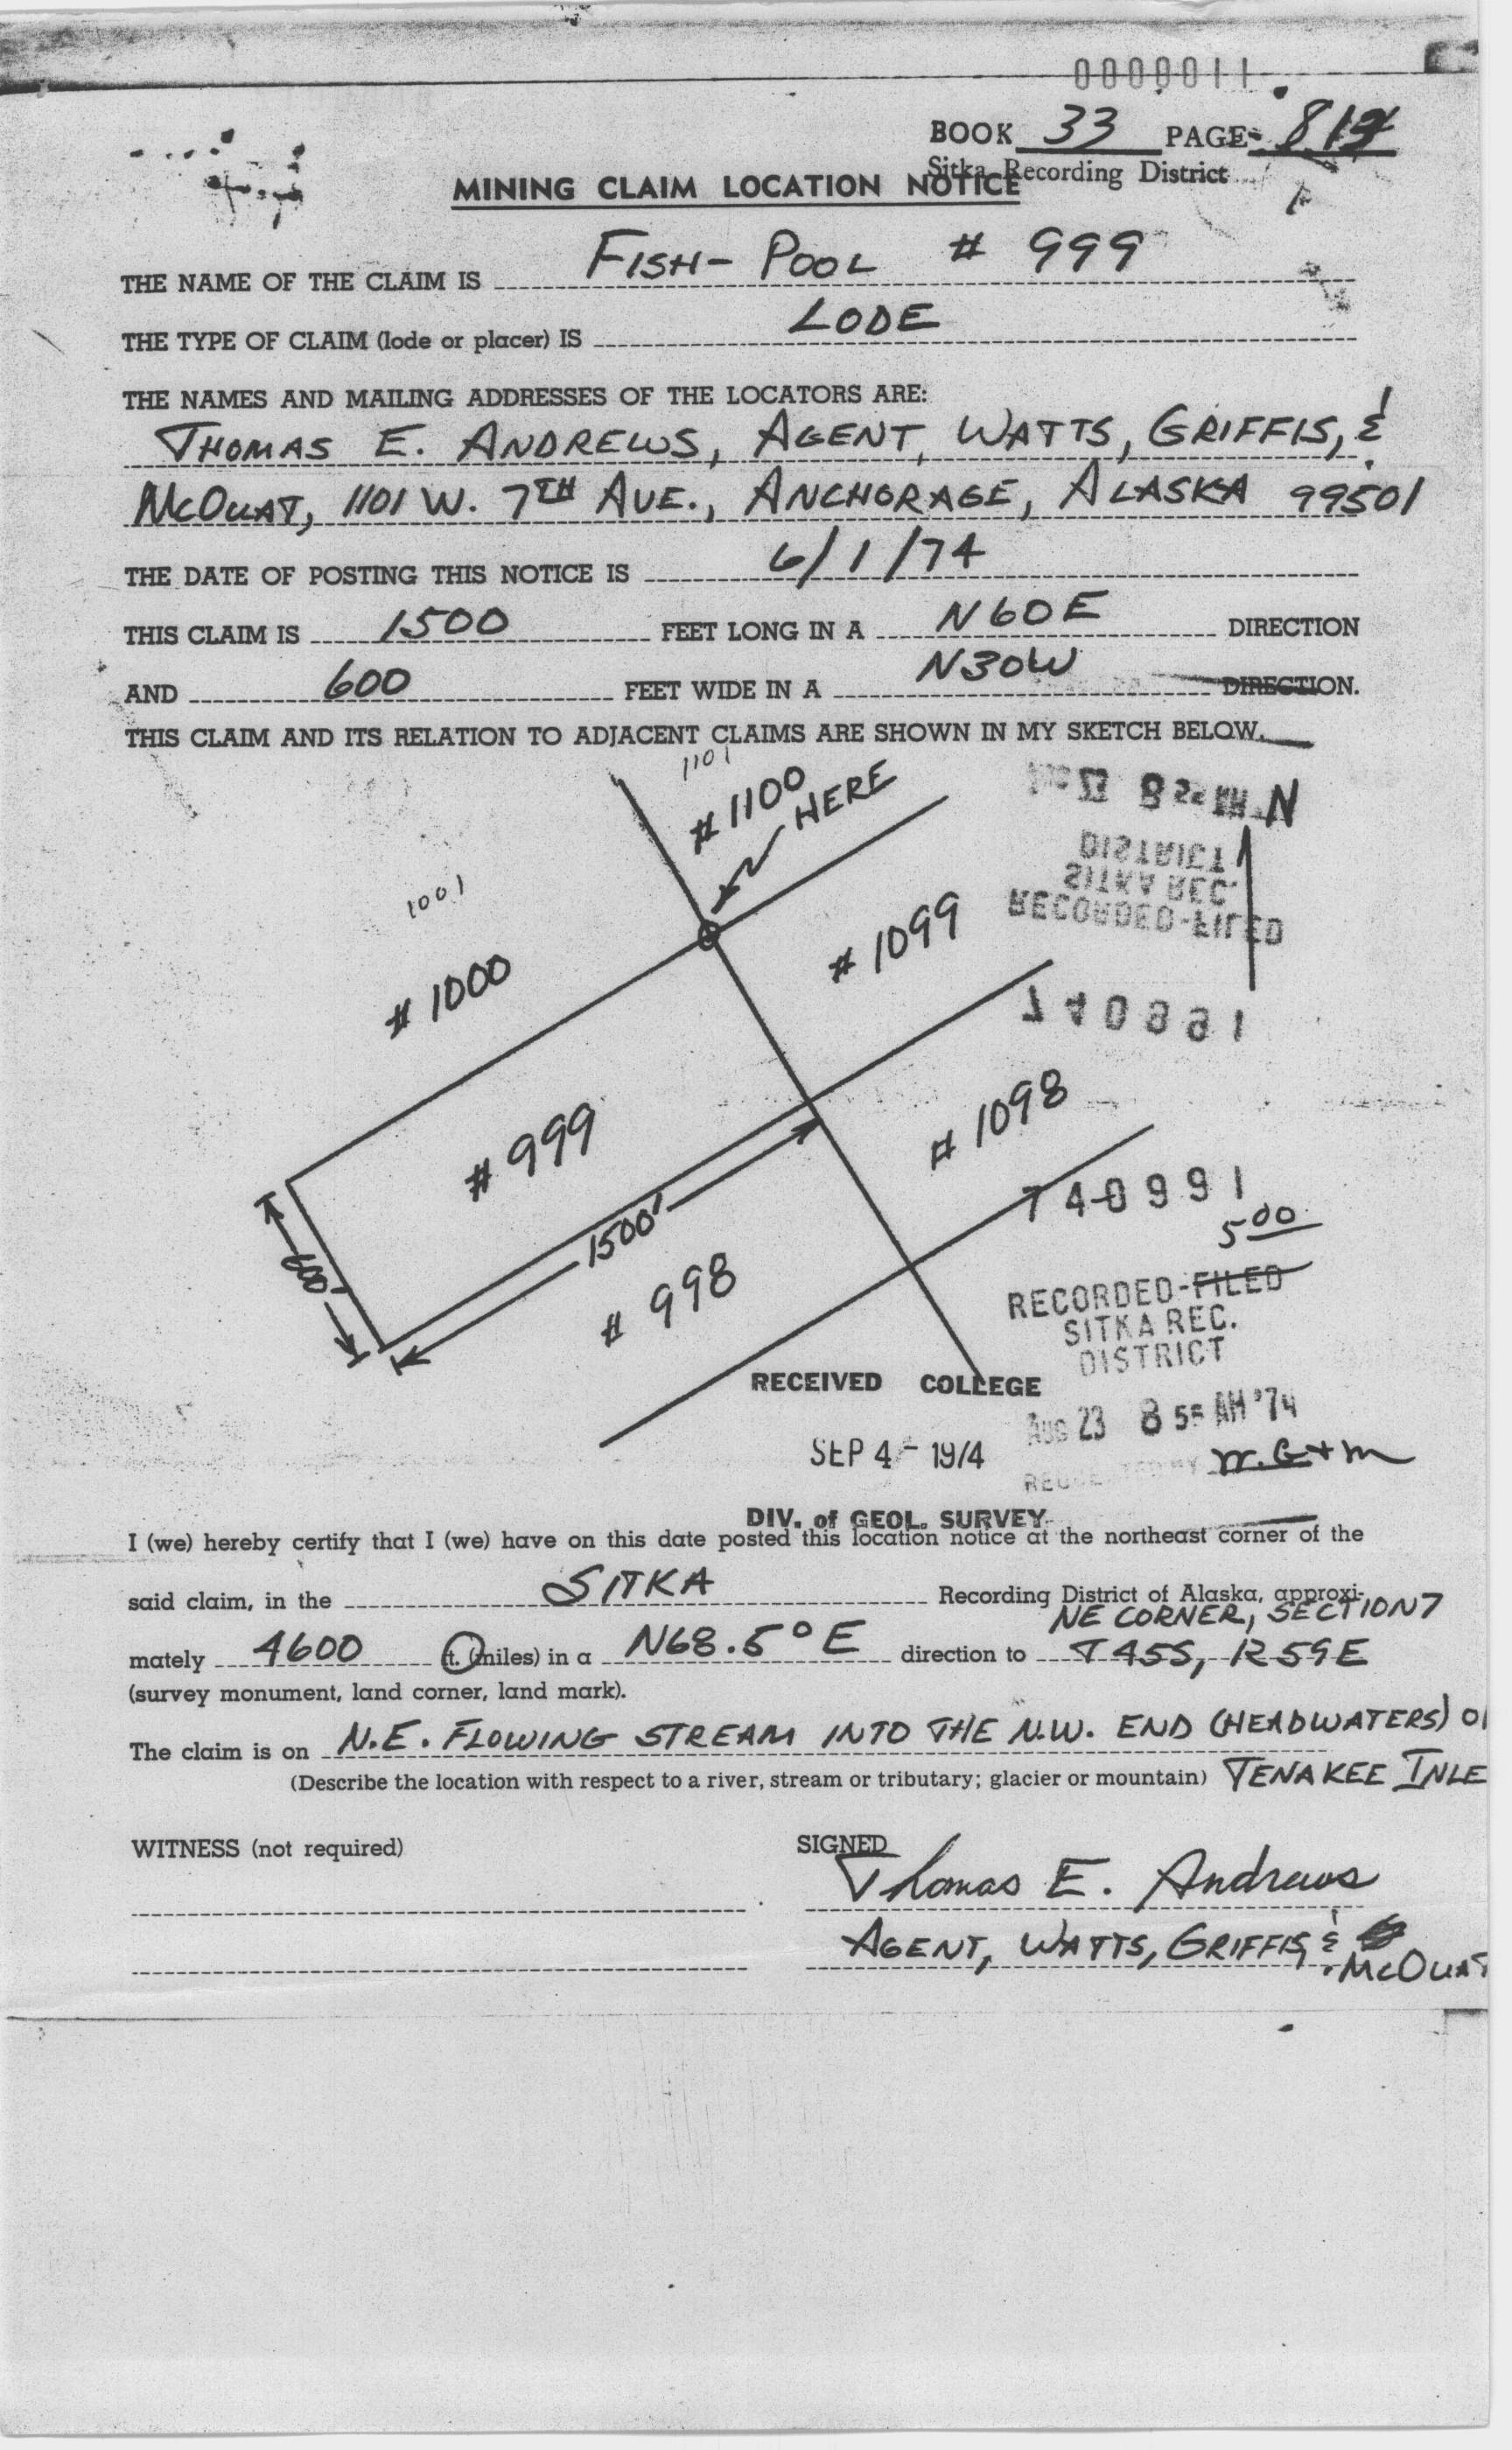 0000011
BOOK 33 PAGE
Sitka Recording District
MINING CLAIM LOCATION NOTICE
THE NAME OF THE CLAIM IS FISH-POOL # 999
THE TYPE OF CLAIM (lode or placer) IS LODE
THE NAMES AND MAILING ADDRESSES OF THE LOCATORS ARE:
THOMAS E. ANDREWS, AGENT, WATTS, GRIFFIS, &
McOUAT, 1101 W. 7TH AVE., ANCHORAGE, ALASKA 99501
THE DATE OF POSTING THIS NOTICE IS 6/1/74
THIS CLAIM IS 1500 FEET LONG IN A N60E DIRECTION
AND 600 FEET WIDE IN A N30W DIRECTION.
THIS CLAIM AND ITS RELATION TO ADJACENT CLAIMS ARE SHOWN IN MY SKETCH BELOW.
1101
# 1100
HERE
N
1001
# 1000
# 1099
# 999
# 1098
600'
1500'
# 998
740991
5 00
RECORDED-FILED
SITKA REC.
DISTRICT
AUG 23 8 55 AM '74
REQUESTED BY W.G+M
RECEIVED COLLEGE
SEP 4 - 1974
DIV. of GEOL. SURVEY
I (we) hereby certify that I (we) have on this date posted this location notice at the northeast corner of the
said claim, in the SITKA Recording District of Alaska, approxi-
mately 4600 ft. (miles) in a N68.5°E direction to NE CORNER, SECTION 7
T45S, R59E
(survey monument, land corner, land mark).
The claim is on N.E. FLOWING STREAM INTO THE N.W. END (HEADWATERS) OF
(Describe the location with respect to a river, stream or tributary; glacier or mountain) TENAKEE INLE
WITNESS (not required)
SIGNED
Thomas E. Andrews
AGENT, WATTS, GRIFFIS, & McOUAT